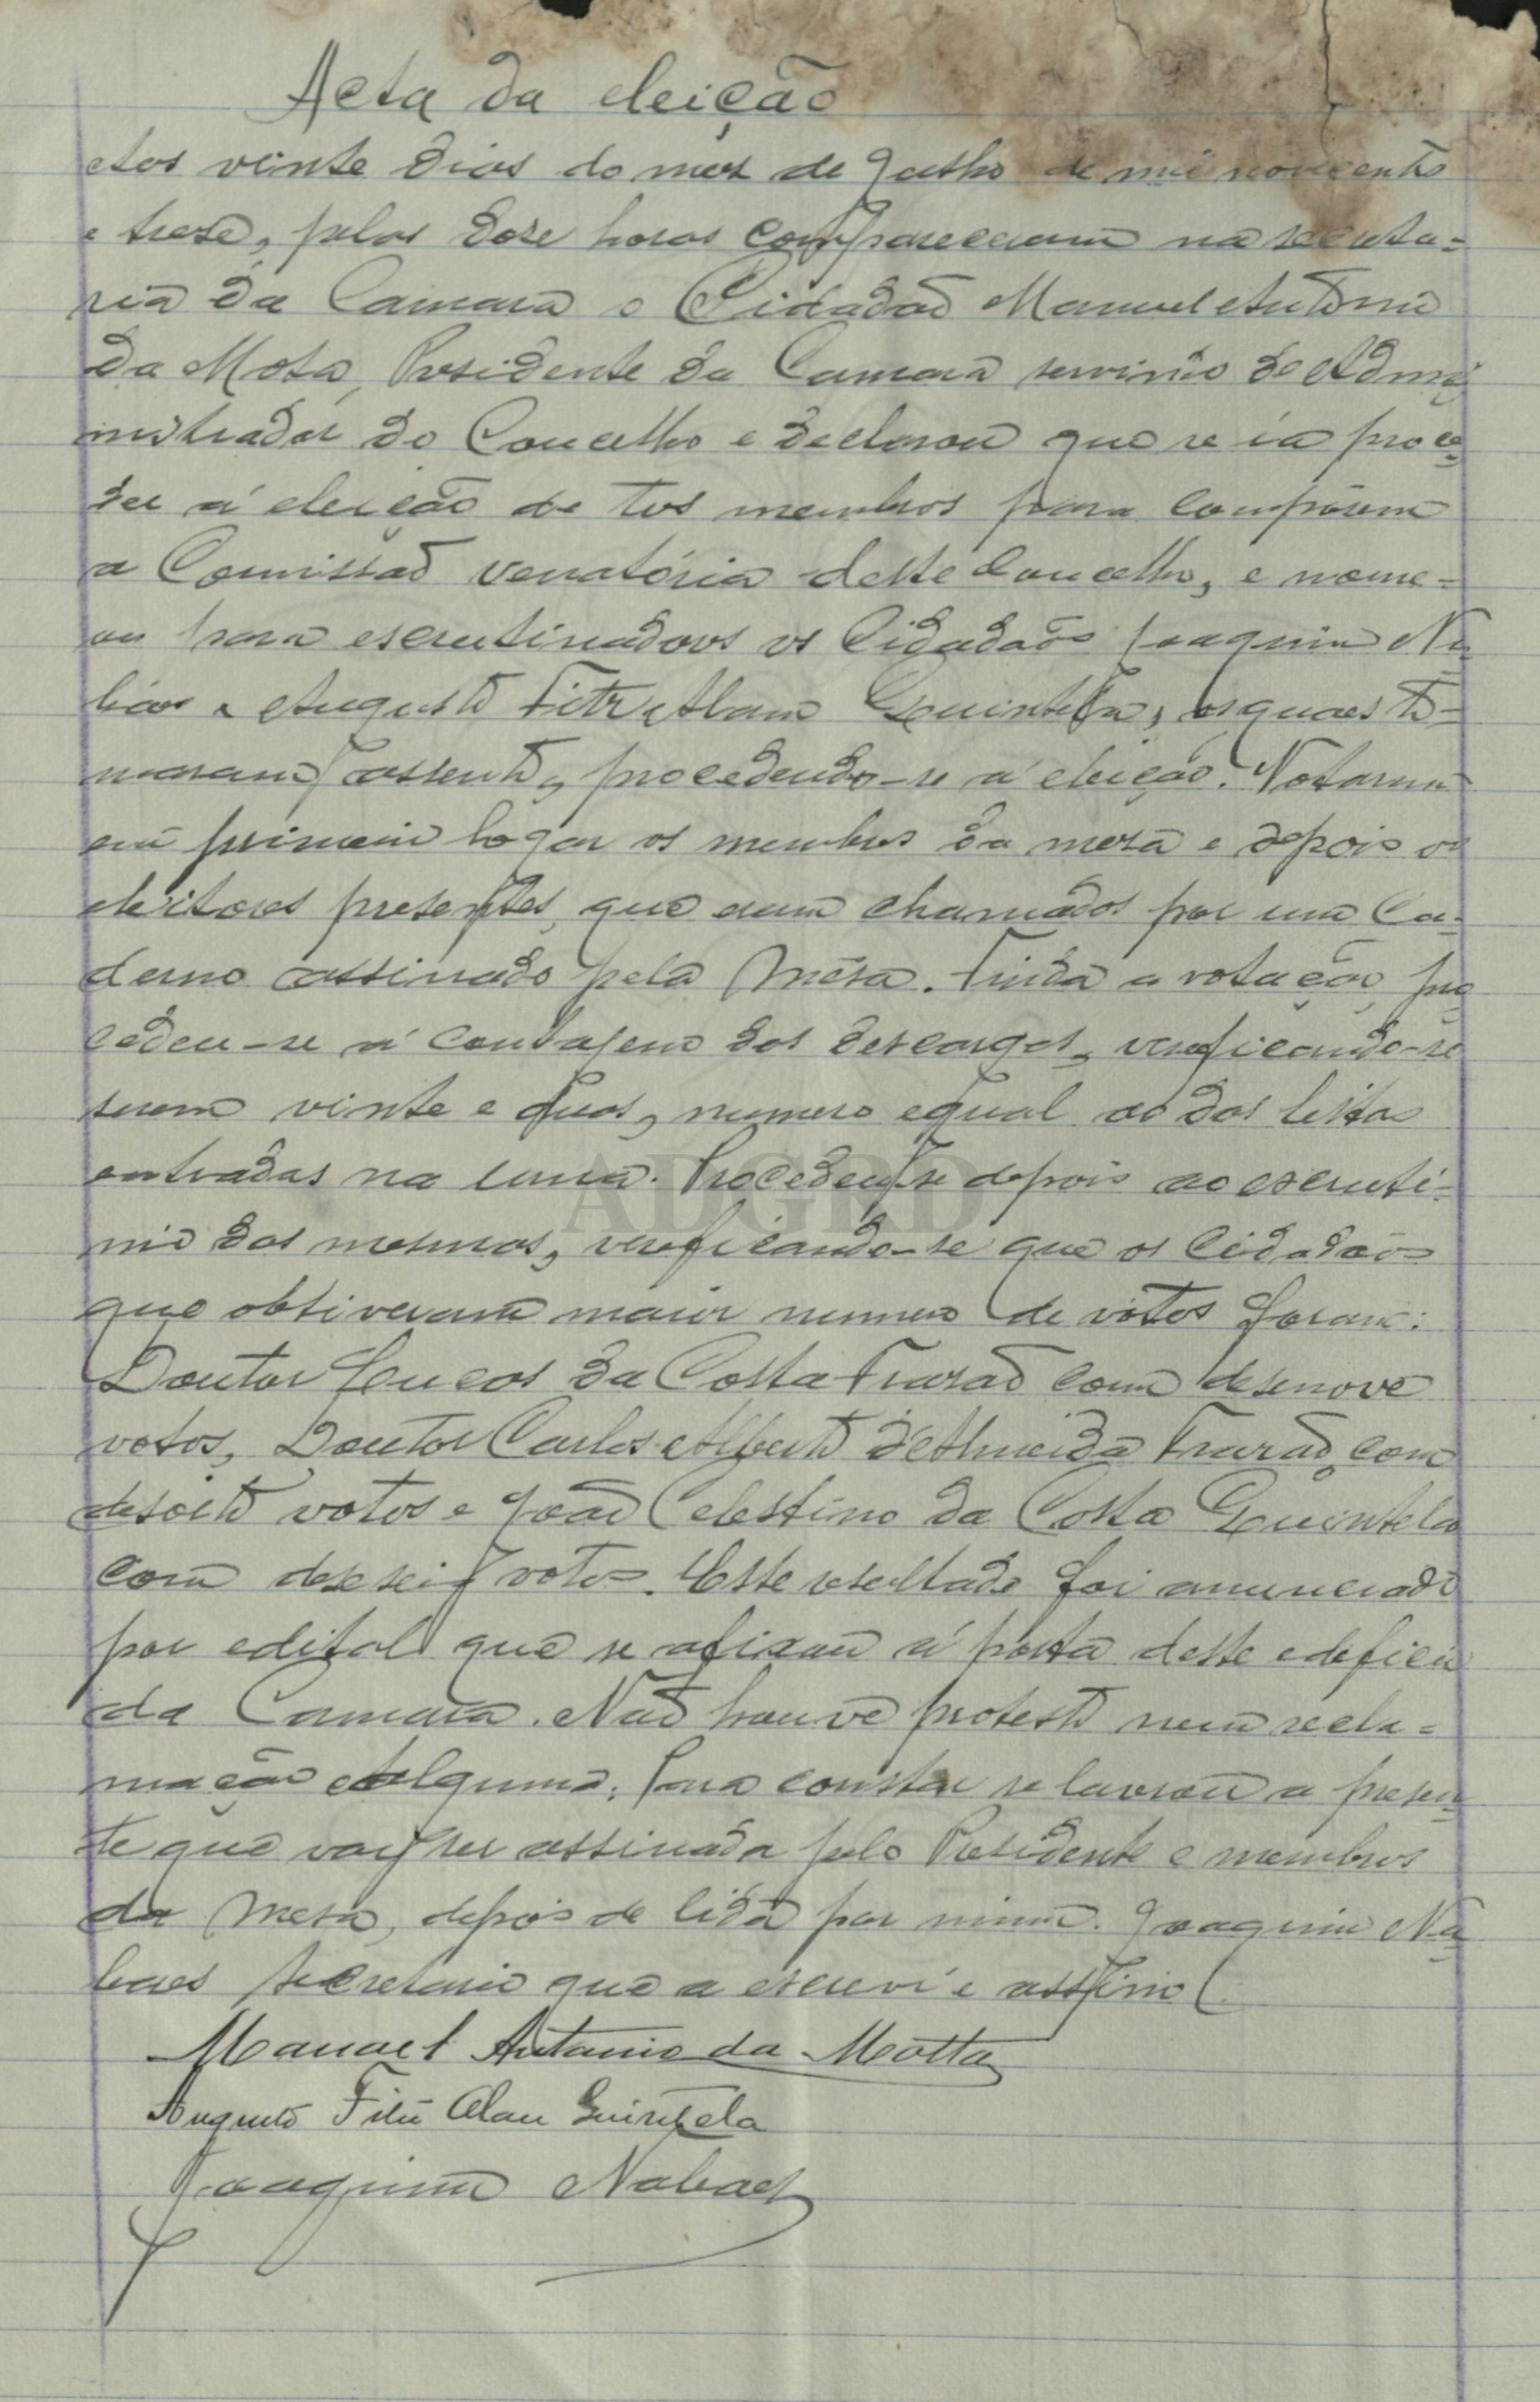 Acta da eleição
Aos vinte dias do mez de Julho de mil novecentos
e treze, pelas doze horas compareceram na secreta=
ria da Camara o Cidadão Manuel Antonio
da Mota, Presidente da Camara servindo de Admi
nistrador do Concelho e declarou que se ia proce
der á eleição de tres membros para comporem
a Comissão venatória deste Concelho, e nome=
ou para escrutinadores os Cidadãos Joaquim Na
báes e Augusto Fitz Alam Quintella, os quaes to=
maram assento, procedendo-se á eleição. Votaram
em primeiro logar os membros da meza e depois os
eleitores presentes, que eram chamados por um Ca=
derno assinado pela Mêsa. Finda a votação, pro
cedeu-se á contagem das descargas, verificando-se
serem vinte e duas, numero egual ao das listas
entradas na urna. Procedeu-se depois ao escruti=
nio das mesmas, verificando-se que os Cidadãos
que obtiveram maior numero de votos foram:
Doutor Lucas da Costa Frazão com desenove
votos, Doutor Carlos Alberto d'Almeida Frazão, com
desoito votos e João Celestino da Costa Quintela
com deseseis votos. Este resultado foi anunciado
por edital que se afixou á porta deste edeficio
da Camara. Não houve protesto nem recla=
mação alguma. Para constar se lavrou a presen
te que vai ser assinada pelo Presidente e membros
da Mesa, depois de lida por mim. Joaquim Na
baes secretario que a escrevi e assino
Manael Antonio da Motta
Augusto Fitz Alan Quintela
Joaquim Nabaes
ADGRD